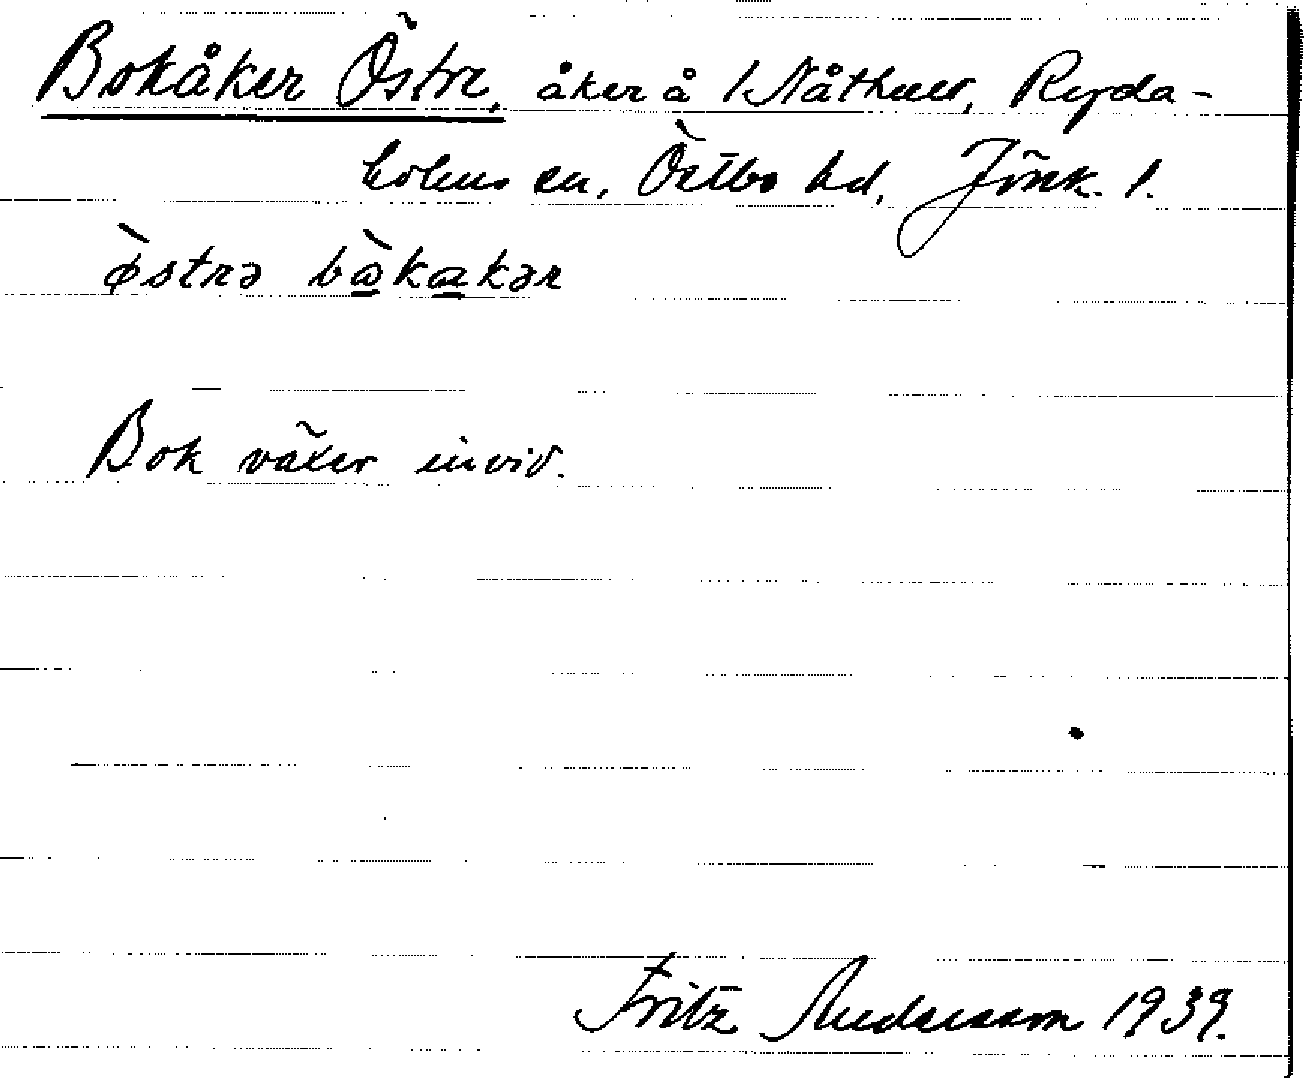 Bokåker Östre, åker å Nåthult, Ryda-
holms sn, Östbo hd, Jönk. l.
östrə bakakər
Bok växer invid.
Fritz Andersson 1939.